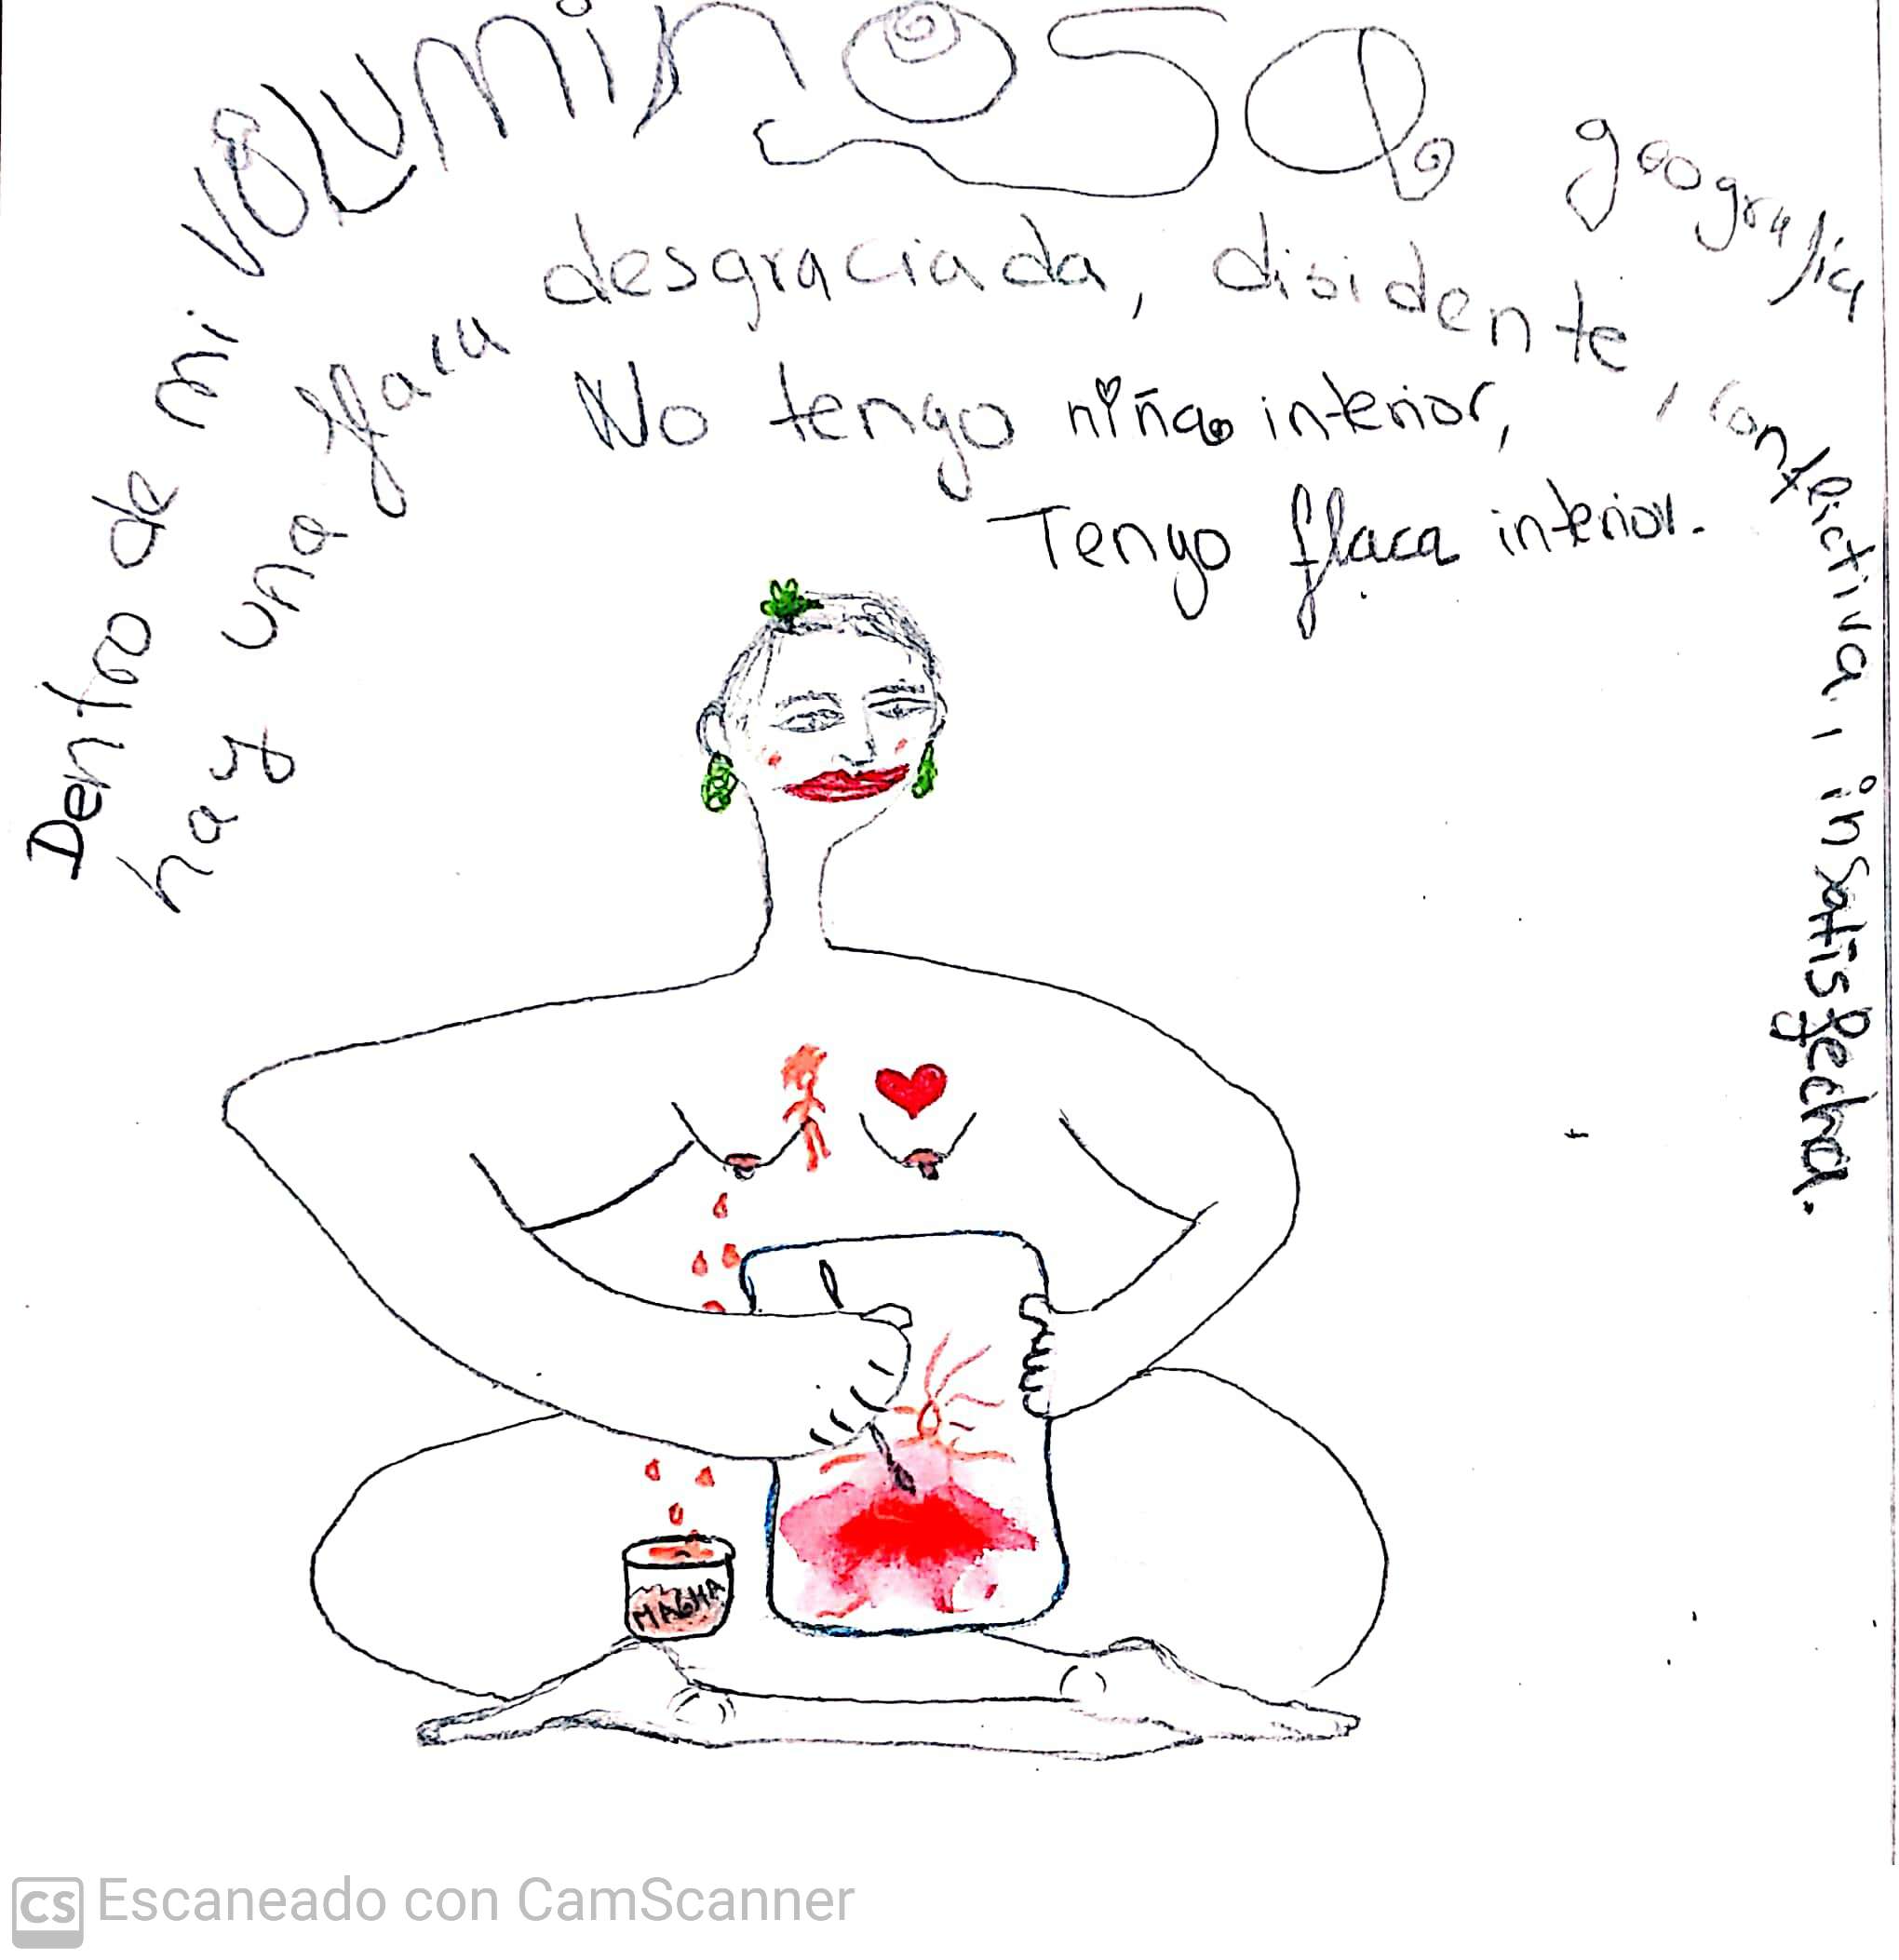 Dentro de mi VOLUMINOSA geografía
hay una flaca desgraciada, disidente, conflictiva, insatisfecha.
No tengo niña interior,
Tengo flaca interior.
MAGMA
CS Escaneado con CamScanner